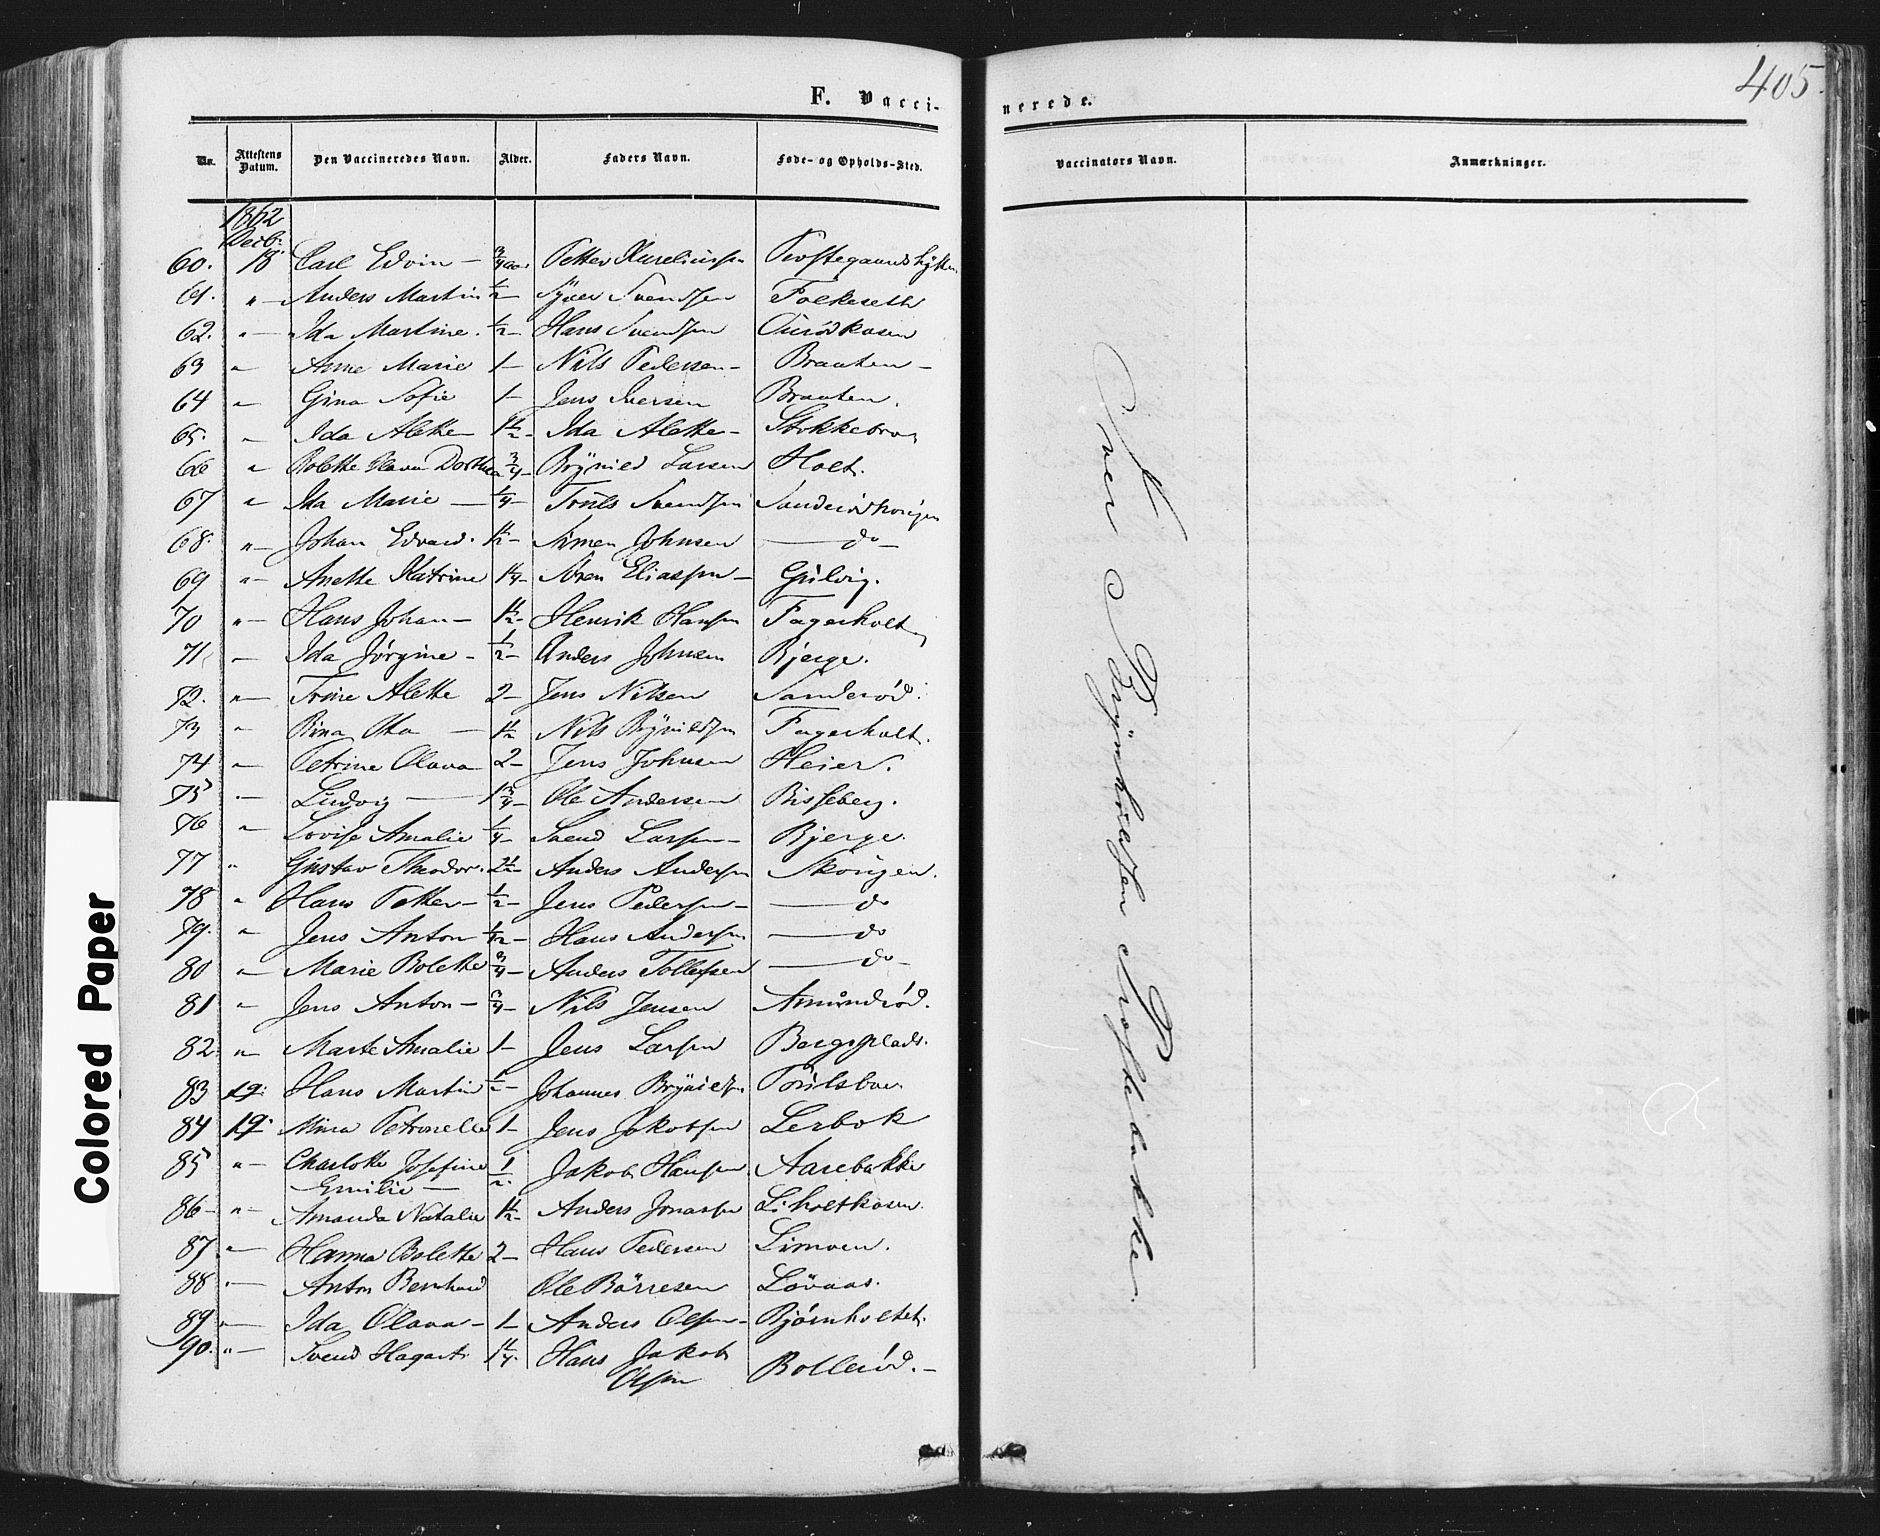 F. Vacci-
nerede.
405.
No. Attestens Datum. Den Vaccineredes Navn. Alder. Faders Navn. Føde- og Opholds-Sted. Vaccinators Navn. Anmærkninger.
1862
Decb:
60. 18 Carl Edvin — 3/4 aar Petter Aureliussen
61. " Anders Martin 1/2 — Syver Svendsen Folkeseth
62. " Ida Martine. 1/2 — Hans Svendsen Aurødkasen
63 " Anne Marie 1 — Nils Pedersen — Braaten —
64 " Gina Sofie 1 — Jens Iversen Braaten.
65. " Ida Alette 1 1/2 — Ida Alette — Stokkebroe
66 " Bolette Olava Dorthea 3/4 — Brynild Larsen Holt.
67 " Ida Marie — 1/4 — Truls Svendsen
68. " Johan Edvard. 1 1/2 — Simen Johnsen — do —
69 " Anette Katrine 1 1/4 — Søren Eliassen — Gulvig.
70 " Hans Johan — 1 1/2 — Henrik Hansen Fagerholt
71 " Ida Jørgine — 1/2 — Anders Johnsen Bjerge.
72. " Trine Alette 2 — Jens Nilsen Sanderød.
73 " Rina Ika — 1 1/2 Nils Brynildsen Fagerholt.
74 " Petrine Olava 2 — Jens Johnsen Heier.
75 " Ludvig — 1 3/4 — Ole Andersen Risseberg.
76 " Lovise Amalie 1/4 — Svend Larsen — Bjerge.
77 " Gustav Theodor. 2 1/2 — Anders Andersen Skougen.
78 " Hans Petter — 1/2 — Jens Pedersen — — do
79. " Jens Anton 1/12 — Hans Andersen — do
80 " Marie Bolette 3/4 — Anders Tollefsen — do —
81 " Jens Anton — 3/4 — Nils Jensen Amundrød.
82. " Marte Amalie 1 — Jens Larsen Bergsplads.
83 19. Hans Martin 1/2 — Johannes Brynildsen Torilsboe
84 19. Mina Petronelle 1 — Jens Jakobsen Lerbok
85 " Charlotte Josefine 1/2. Jakob Hansen Aarebakke
Emilie —
86 — " Amanda Natalie 1 1/2 — Anders Jonassen Liholtkasen.
87. " Hanna Bolette 2 — Hans Pedersen Limoen.
88 " Anton Bernhard Ole Børresen Løvaas.
89 " Ida Olava — 1 — Anders Olsen — Bjørnholtet.
90. " Svend Hagart 1 1/4. Hans Jakob Bollerød. —
Olsen
Iver Brynhildsen Profstebakke.
Colored Paper